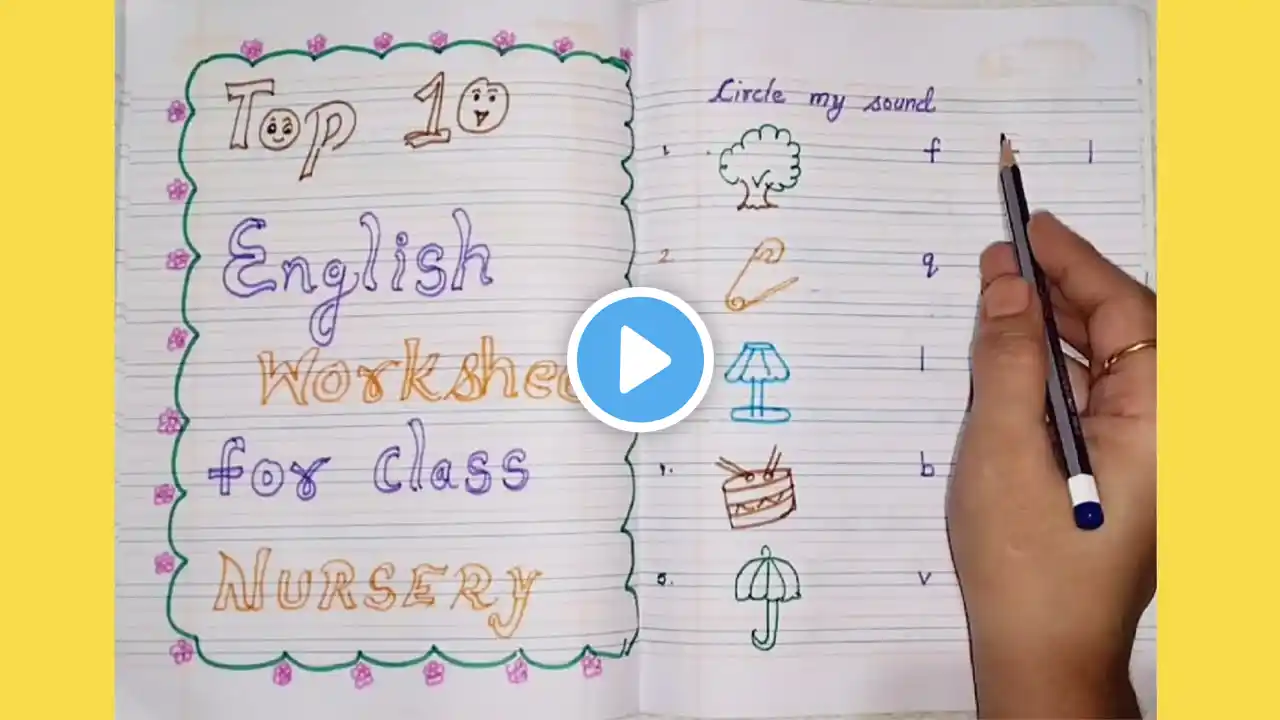 Top 10
English
Workshee
for class
NURSERY
Circle my sound
1. f l
2. q
l
b
5. v